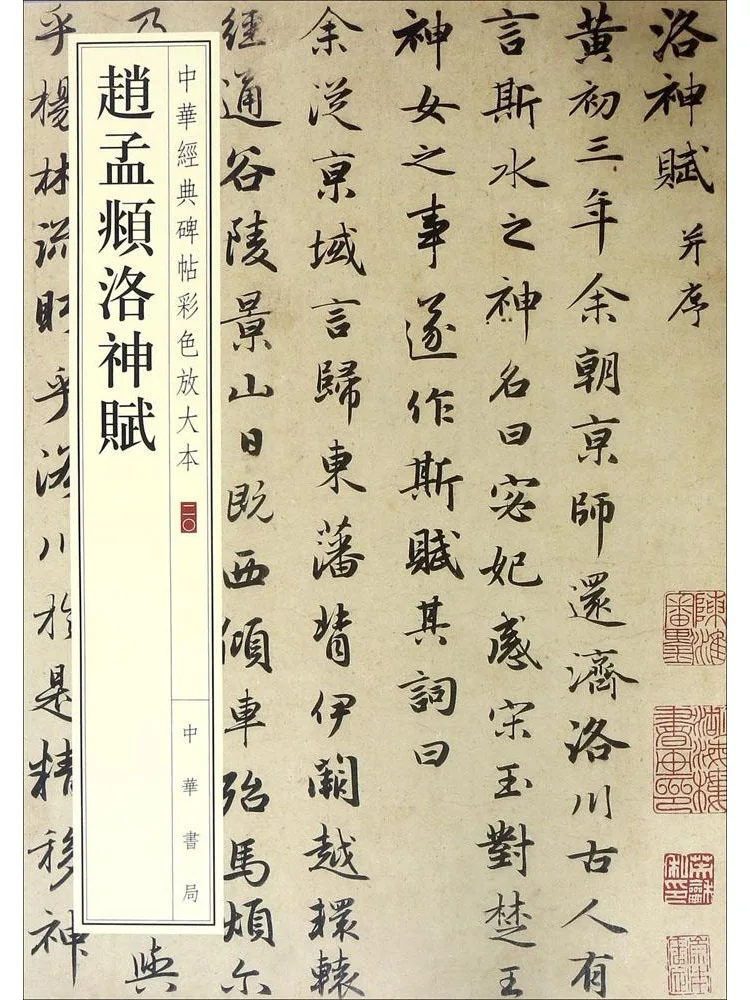 洛神賦 并序
黃初三年余朝京師還濟洛川古人有
言斯水之神名曰宓妃感宋玉對楚王
神女之事遂作斯賦其詞曰
余從京域言歸東藩背伊闕越轘轅
經通谷陵景山日既西傾車殆馬煩尔
乃
與
乎楊林流眄乎洛川於是精移神
中華經典碑帖彩色放大本 二〇
趙孟頫洛神賦
中華書局